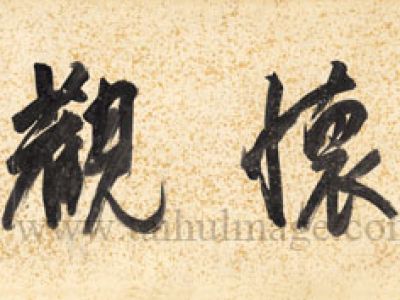 懷觀
www.taihuImage.co